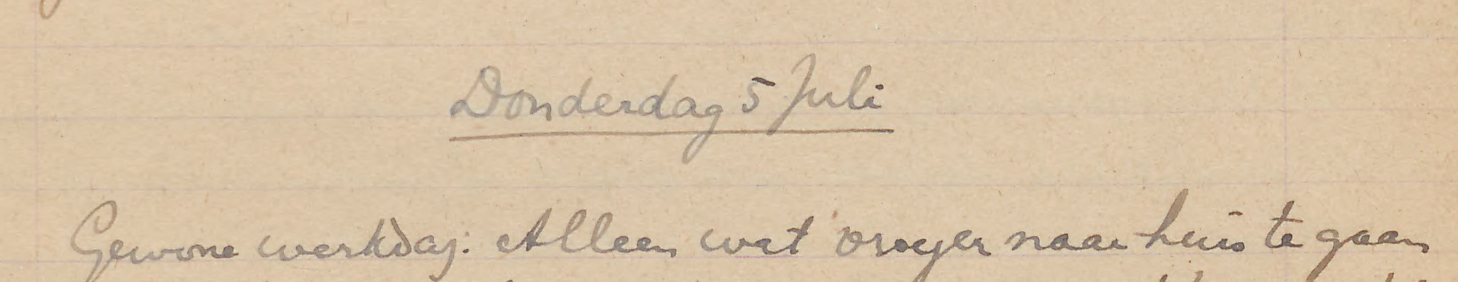 Donderdag 5 Juli
Gewone werkdag: Alleen wat vroeger naar huis te gaan